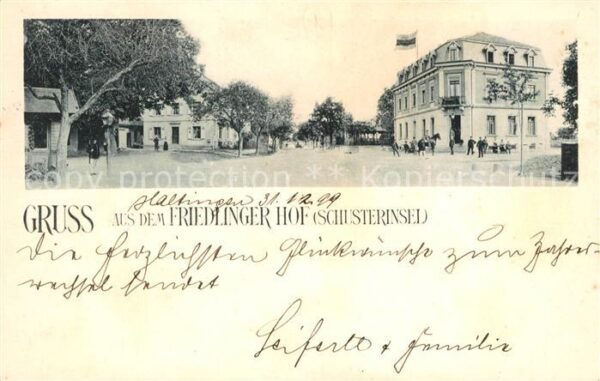 copyright protection Kopierschutz
Haltingen 31.12.99
GRUSS AUS DEM FRIEDLINGER HOF (SCHUSTERINSEL)
Die herzlichsten Glückwünsche zum Jahres-
wechsel sendet
Seiferle + Familie